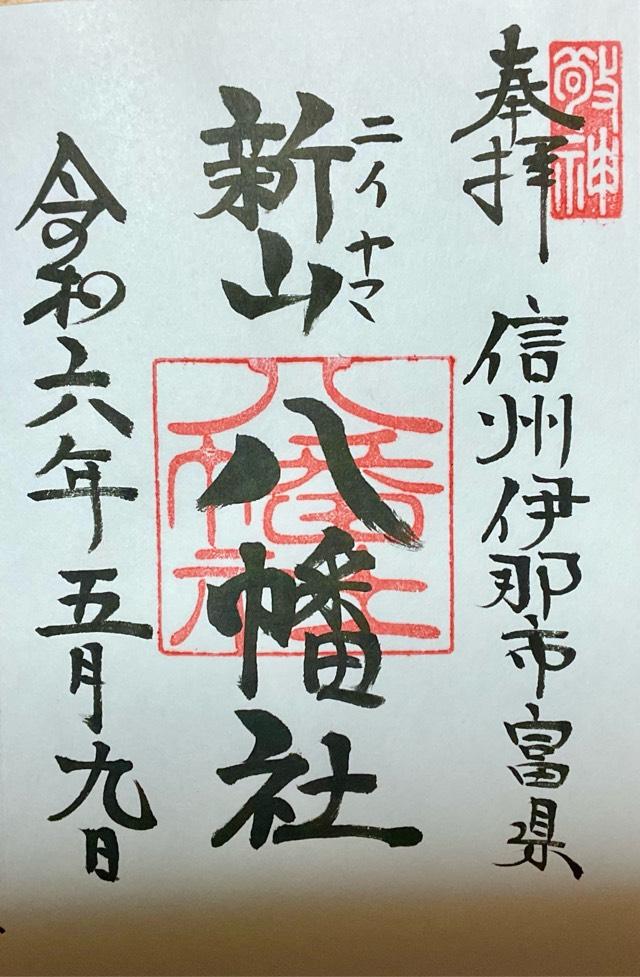 敬神
奉拝
信州伊那市富県
ニイヤマ
新山八幡社
八幡社
令和六年五月九日